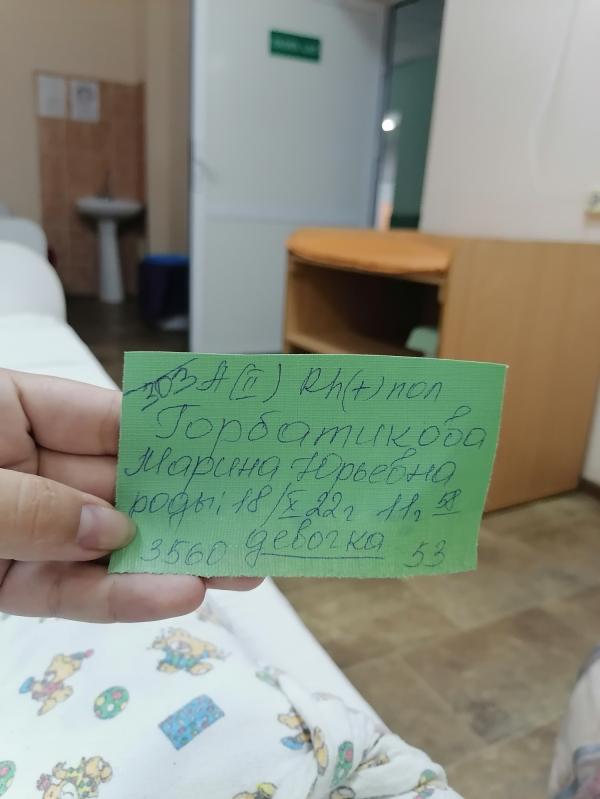 303 A(II) Rh(+) пол
Горбатикова
Марина Юрьевна
роды: 18/X 22г 11г 58
3560 девочка 53